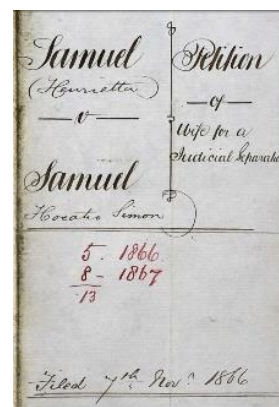 Samuel
(Henrietta)
v
Samuel
Horatio Simon
Petition
of
Wife for a
Judicial Separation
5 . 1866
8 - 1867
13
Filed 7th Novr 1866